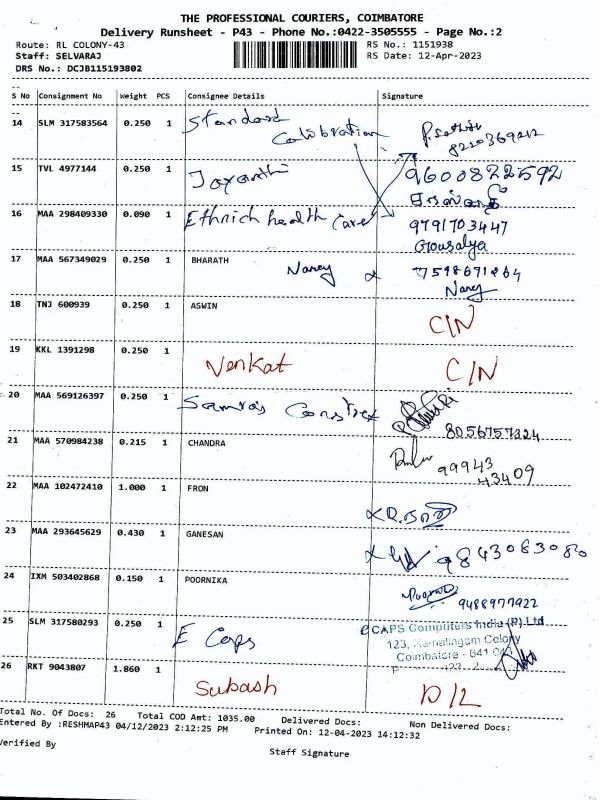 THE PROFESSIONAL COURIERS, COIMBATORE
Delivery Runsheet - P43 - Phone No.:0422-3505555 - Page No.:2
Route: RL COLONY-43 RS No.: 1151938
Staff: SELVARAJ RS Date: 12-Apr-2023
DRS No.: DCJB115193802
S No Consignment No Weight PCS Consignee Details Signature
14 SLM 317583564 0.250 1 Standard Calibration
8220369212
15 TVL 4977144 0.250 1 Jayanthi 9600822592
16 MAA 298409330 0.090 1 Ethnich health Care 9791703447
Gousalya
17 MAA 567349029 0.250 1 BHARATH Nancy 7598671864
Nancy
18 TNJ 600939 0.250 1 ASWIN C/N
19 KKL 1391298 0.250 1 Venkat C/N
20 MAA 569126397 0.250 1
8056757324
21 MAA 570984238 0.215 1 CHANDRA 99943
43409
22 MAA 102472410 1.000 1 FRON
23 MAA 293645629 0.430 1 GANESAN 9843083080
24 IXM 503402868 0.150 1 POORNIKA
9488977922
25 SLM 317580293 0.250 1 E Caps eCAPS Computers India (P) Ltd
123, Ramalingam Colony
Coimbatore - 641 043
26 RKT 9043807 1.860 1 Subash D/L
Total No. Of Docs: 26 Total COD Amt: 1035.00 Delivered Docs: Non Delivered Docs:
Entered By :RESHMAP43 04/12/2023 2:12:25 PM Printed On: 12-04-2023 14:12:32
Verified By Staff Signature